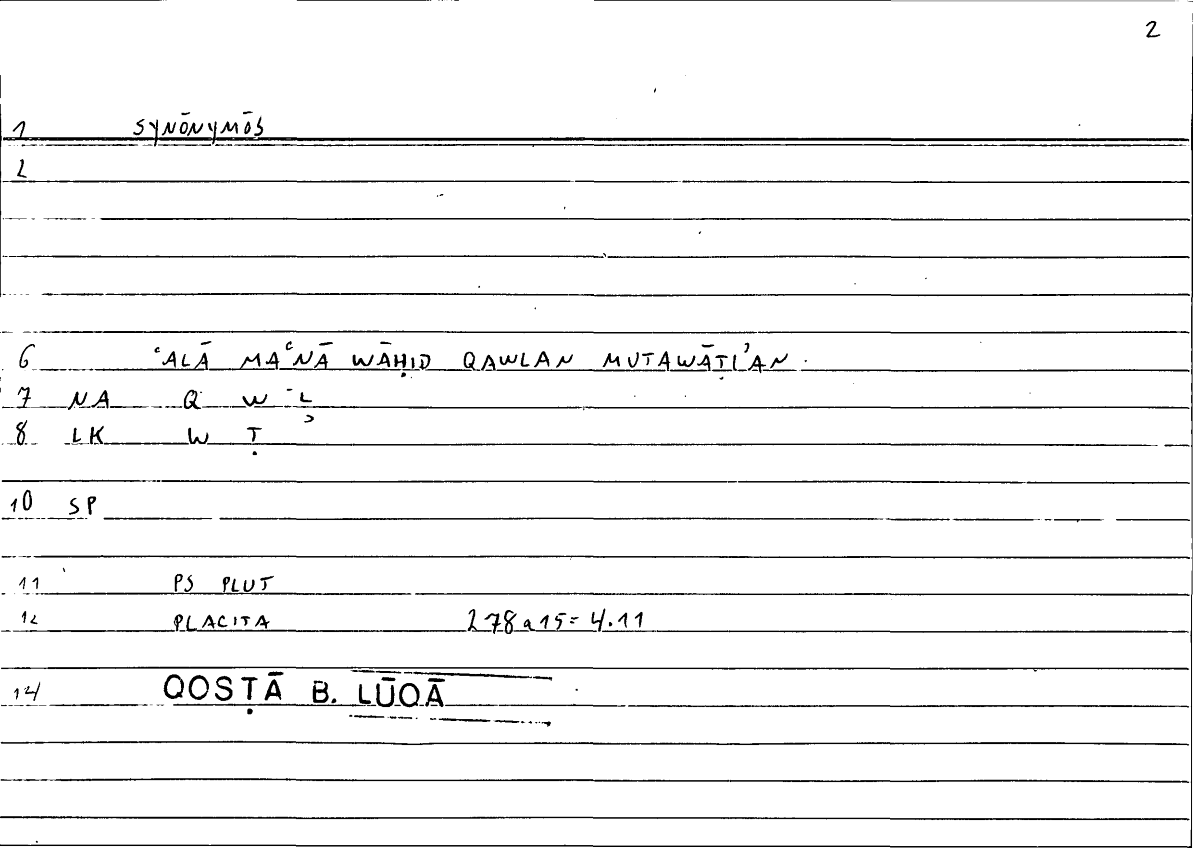 2
1 SYNŌNYMŌS
2
6 ʿALĀ MAʿNĀ WĀḤID QAWLAN MUTAWĀṬIʾAN
7 NA Q W L
8 LK W Ṭ ʾ
10 SP
11 PS PLUT
12 PLACITA 278a15=4.11
14 QOSṬĀ B. LŪQĀ